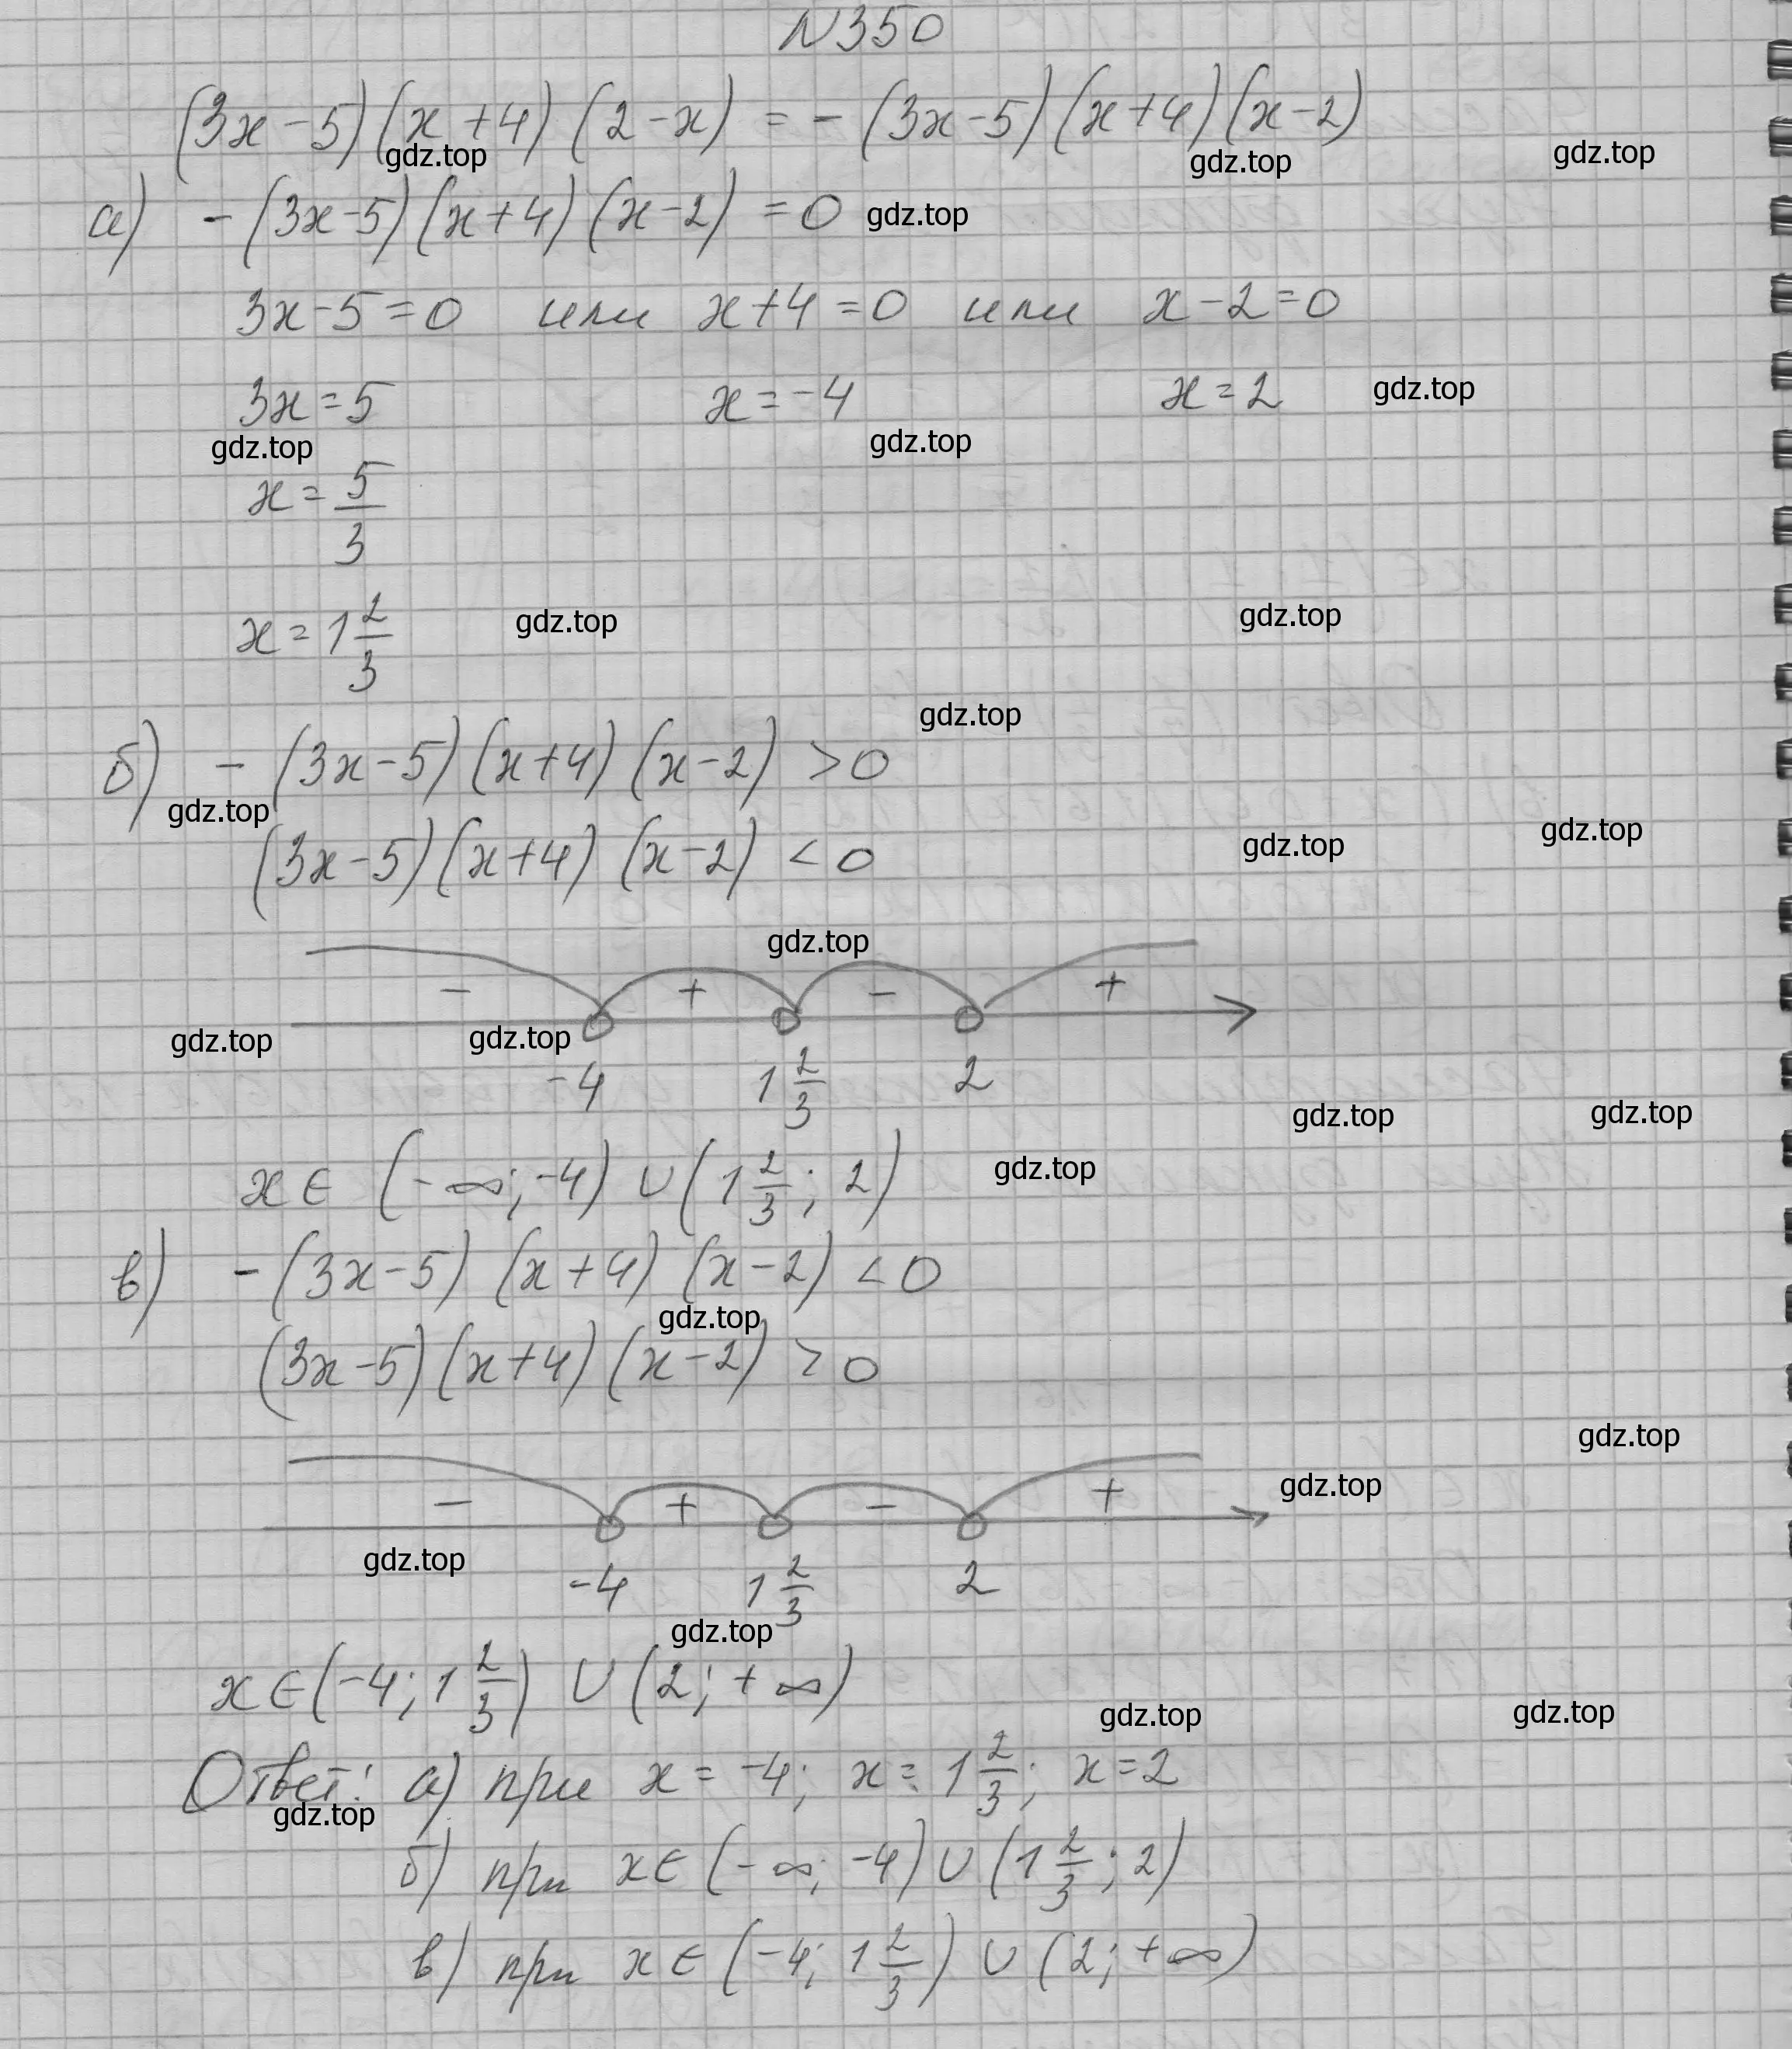 N350
(3x-5)(x+4)(2-x) = -(3x-5)(x+4)(x-2)
gdz.top gdz.top gdz.top
а) -(3x-5)(x+4)(x-2) = 0 gdz.top
3x-5=0 или x+4=0 или x-2=0
3x=5 x=-4 x=2 gdz.top
gdz.top gdz.top
x = 5/3
x = 1 2/3 gdz.top gdz.top
gdz.top
б) -(3x-5)(x+4)(x-2) > 0
gdz.top
(3x-5)(x+4)(x-2) < 0 gdz.top gdz.top
gdz.top
- + - +
gdz.top gdz.top
-4 1 2/3 2
gdz.top gdz.top
x ∈ (-∞; -4) ∪ (1 2/3; 2) gdz.top
в) -(3x-5)(x+4)(x-2) < 0
gdz.top
(3x-5)(x+4)(x-2) > 0
gdz.top
- + - + gdz.top
gdz.top
-4 1 2/3 2
gdz.top
x ∈ (-4; 1 2/3) ∪ (2; +∞)
gdz.top gdz.top
Ответ: а) при x = -4; x = 1 2/3; x = 2
gdz.top
б) при x ∈ (-∞; -4) ∪ (1 2/3; 2)
в) при x ∈ (-4; 1 2/3) ∪ (2; +∞)